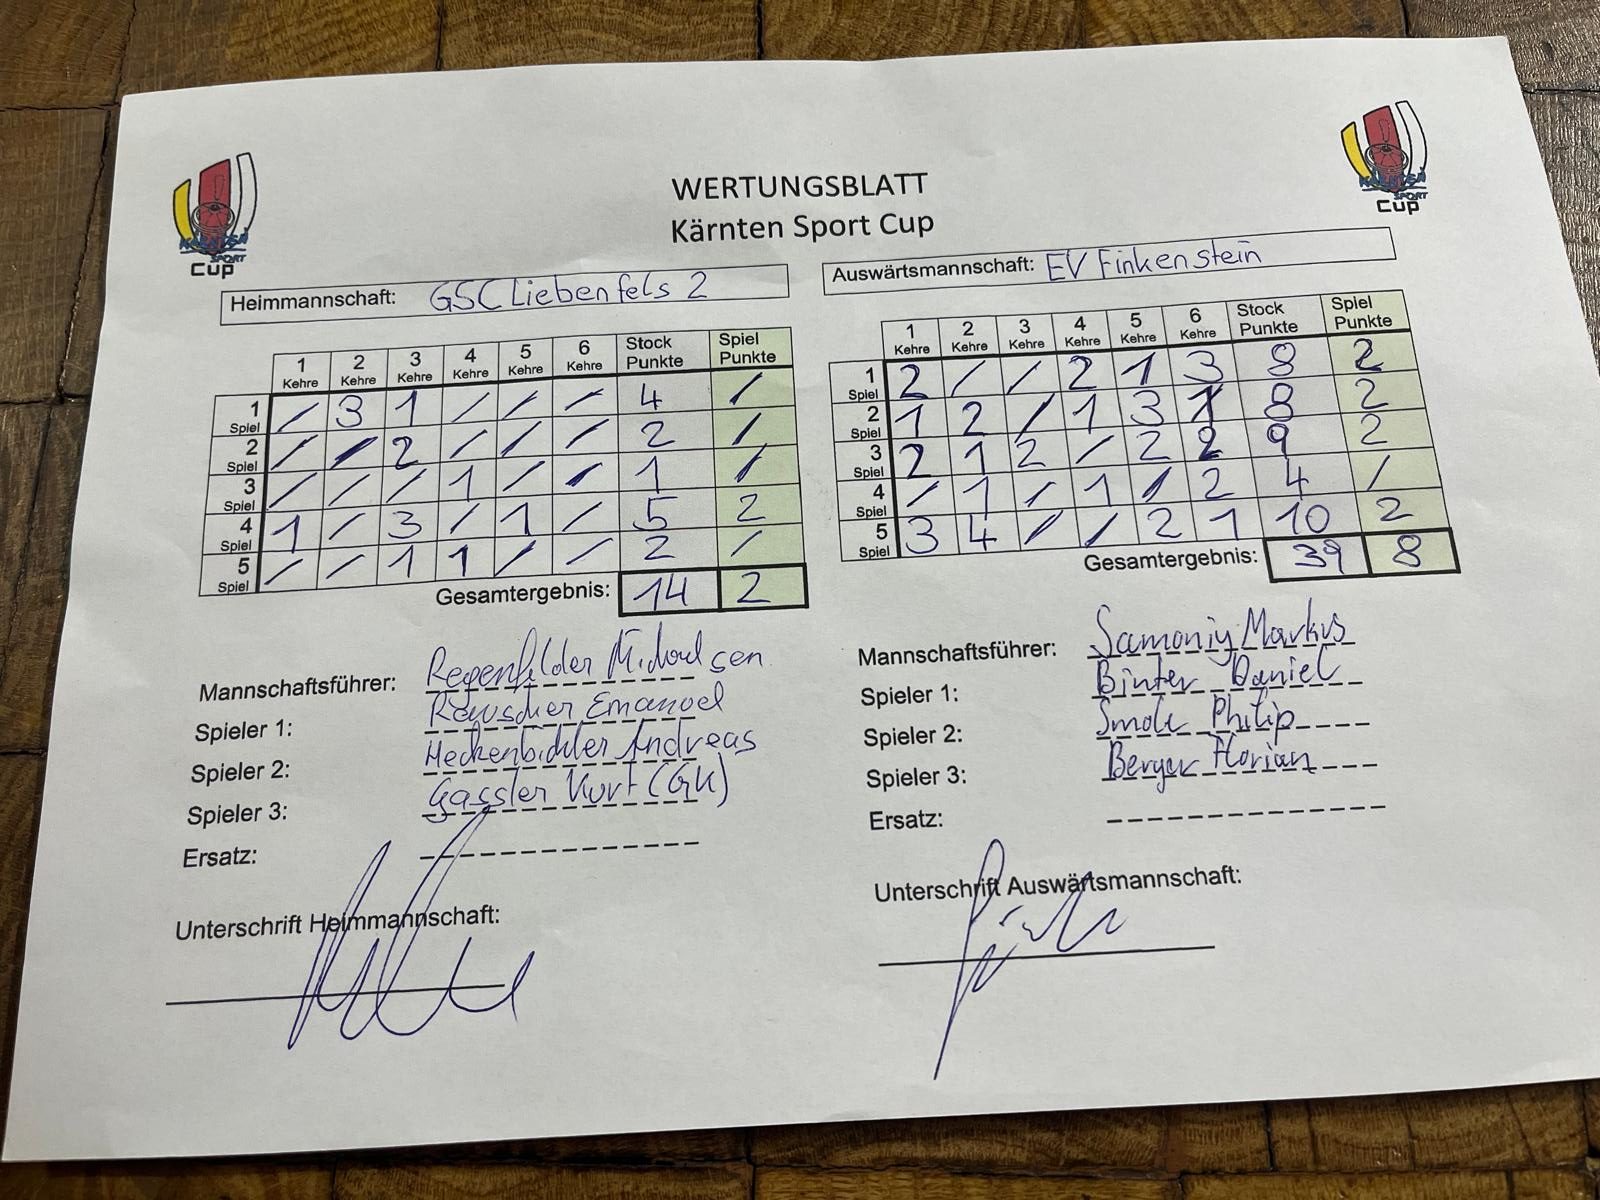 WERTUNGSBLATT
Kärnten Sport Cup
KÄRNTEN
SPORT
Cup
KÄRNTEN
SPORT
Cup
Heimmannschaft: GSC Liebenfels 2
1 Kehre 2 Kehre 3 Kehre 4 Kehre 5 Kehre 6 Kehre Stock Punkte Spiel Punkte
1 Spiel / 3 1 / / / 4 /
2 Spiel / / 2 / / / 2 /
3 Spiel / / / 1 / / 1 /
4 Spiel 1 / 3 / 1 / 5 2
5 Spiel / / 1 1 / / 2 /
Gesamtergebnis: 14 2
Mannschaftsführer: Regenfelder Michael sen.
Spieler 1: Rauscher Emanuel
Spieler 2: Heckenbichler Andreas
Spieler 3: Gassler Kurt (GK)
Ersatz:
Unterschrift Heimmannschaft:
Auswärtsmannschaft: EV Finkenstein
1 Kehre 2 Kehre 3 Kehre 4 Kehre 5 Kehre 6 Kehre Stock Punkte Spiel Punkte
1 Spiel 2 / / 2 1 3 8 2
2 Spiel 1 2 / 1 3 1 8 2
3 Spiel 2 1 2 / 2 2 9 2
4 Spiel / 1 / 1 / 2 4 /
5 Spiel 3 4 / / 2 1 10 2
Gesamtergebnis: 39 8
Mannschaftsführer: Samonig Markus
Spieler 1: Binter Daniel
Spieler 2: Smole Philip
Spieler 3: Berger Florian
Ersatz:
Unterschrift Auswärtsmannschaft: